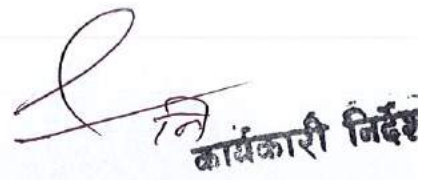 नि
कार्यकारी निर्देश